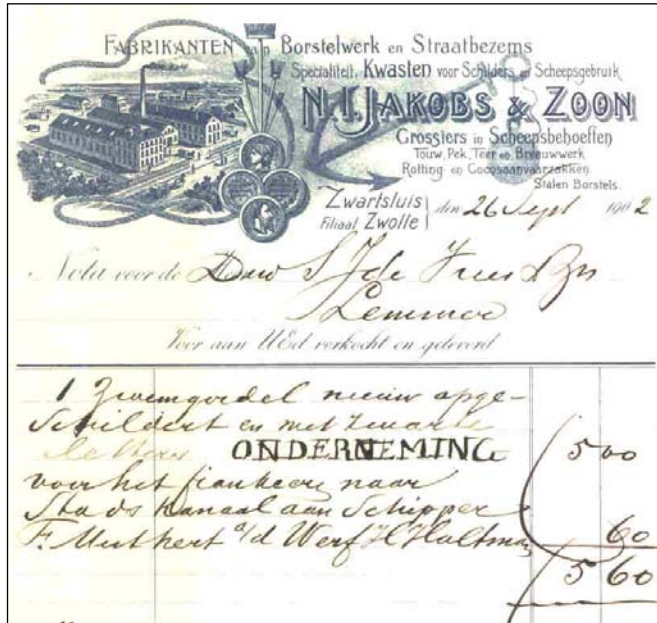 FABRIKANTEN van Borstelwerk en Straatbezems
Specialiteit. Kwasten voor Schilders en Scheepsgebruik
N. I. JAKOBS & ZOON
Grossiers in Scheepsbehoeften
Touw, Pek, Teer en Breeuwwerk
Rotting- en Cocosaanvaarzakken
Stalen Borstels.
Zwartsluis
Filiaal Zwolle } den 26 Sept 1902
Nota voor de Heer S J de Vries & Zn
Lemmer
Voor aan UEd verkocht en geleverd
1 Zwemgordel nieuw opge-
schildert en met zwarte
letters ONDERNEMING 5 00
voor het frankeere naar
Stads Kanaal aan Schipper
F. a/d Werf H Holtman 60
5 60